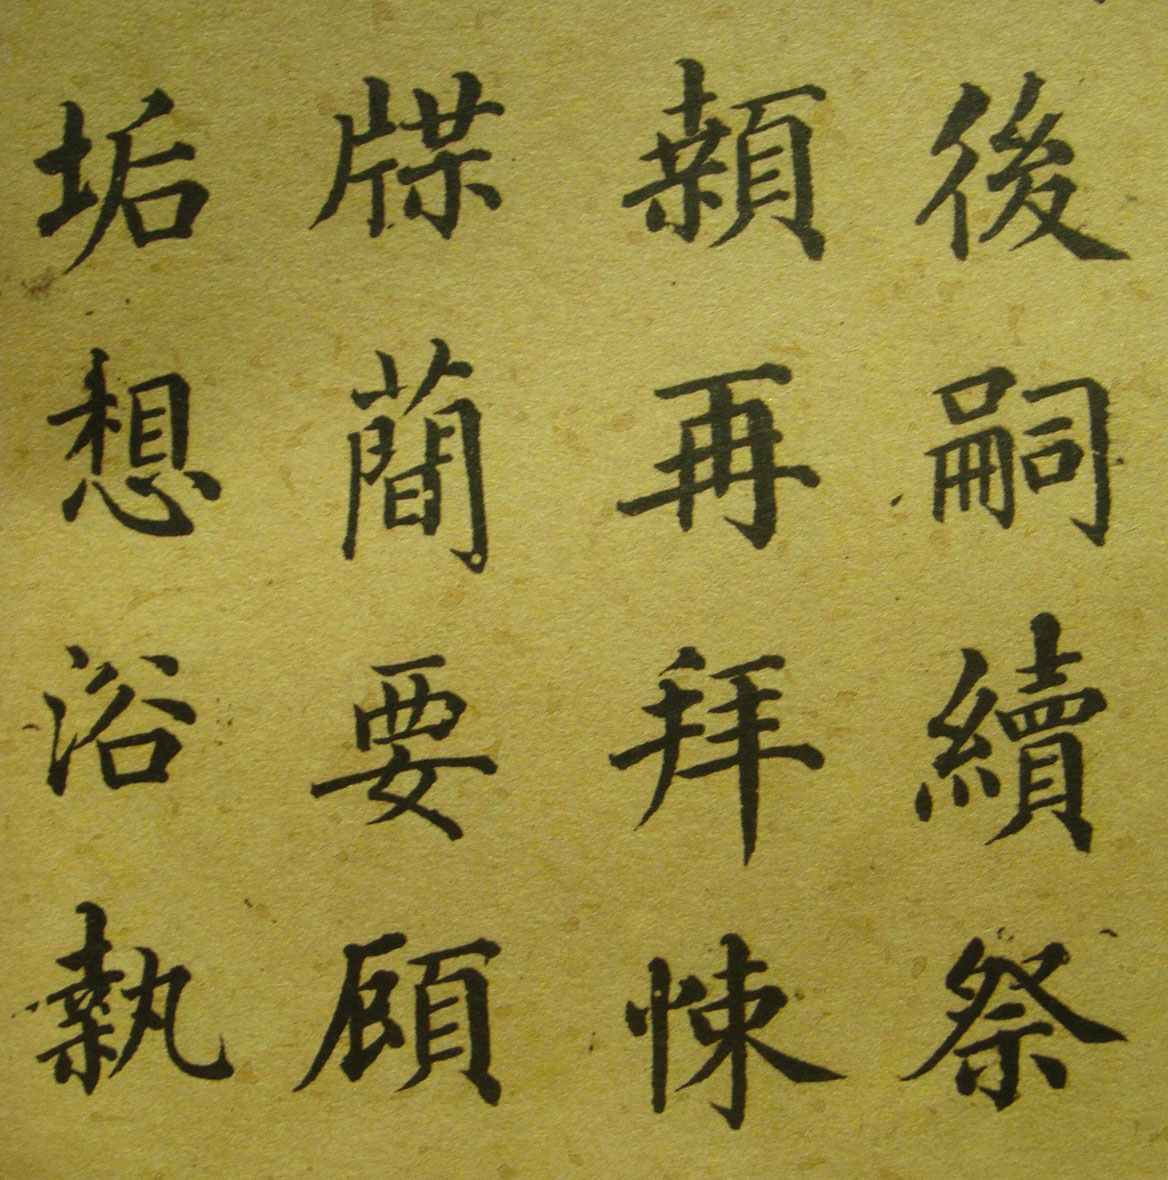 後嗣續祭
顙再拜悚
牒簡要顧
垢想浴執